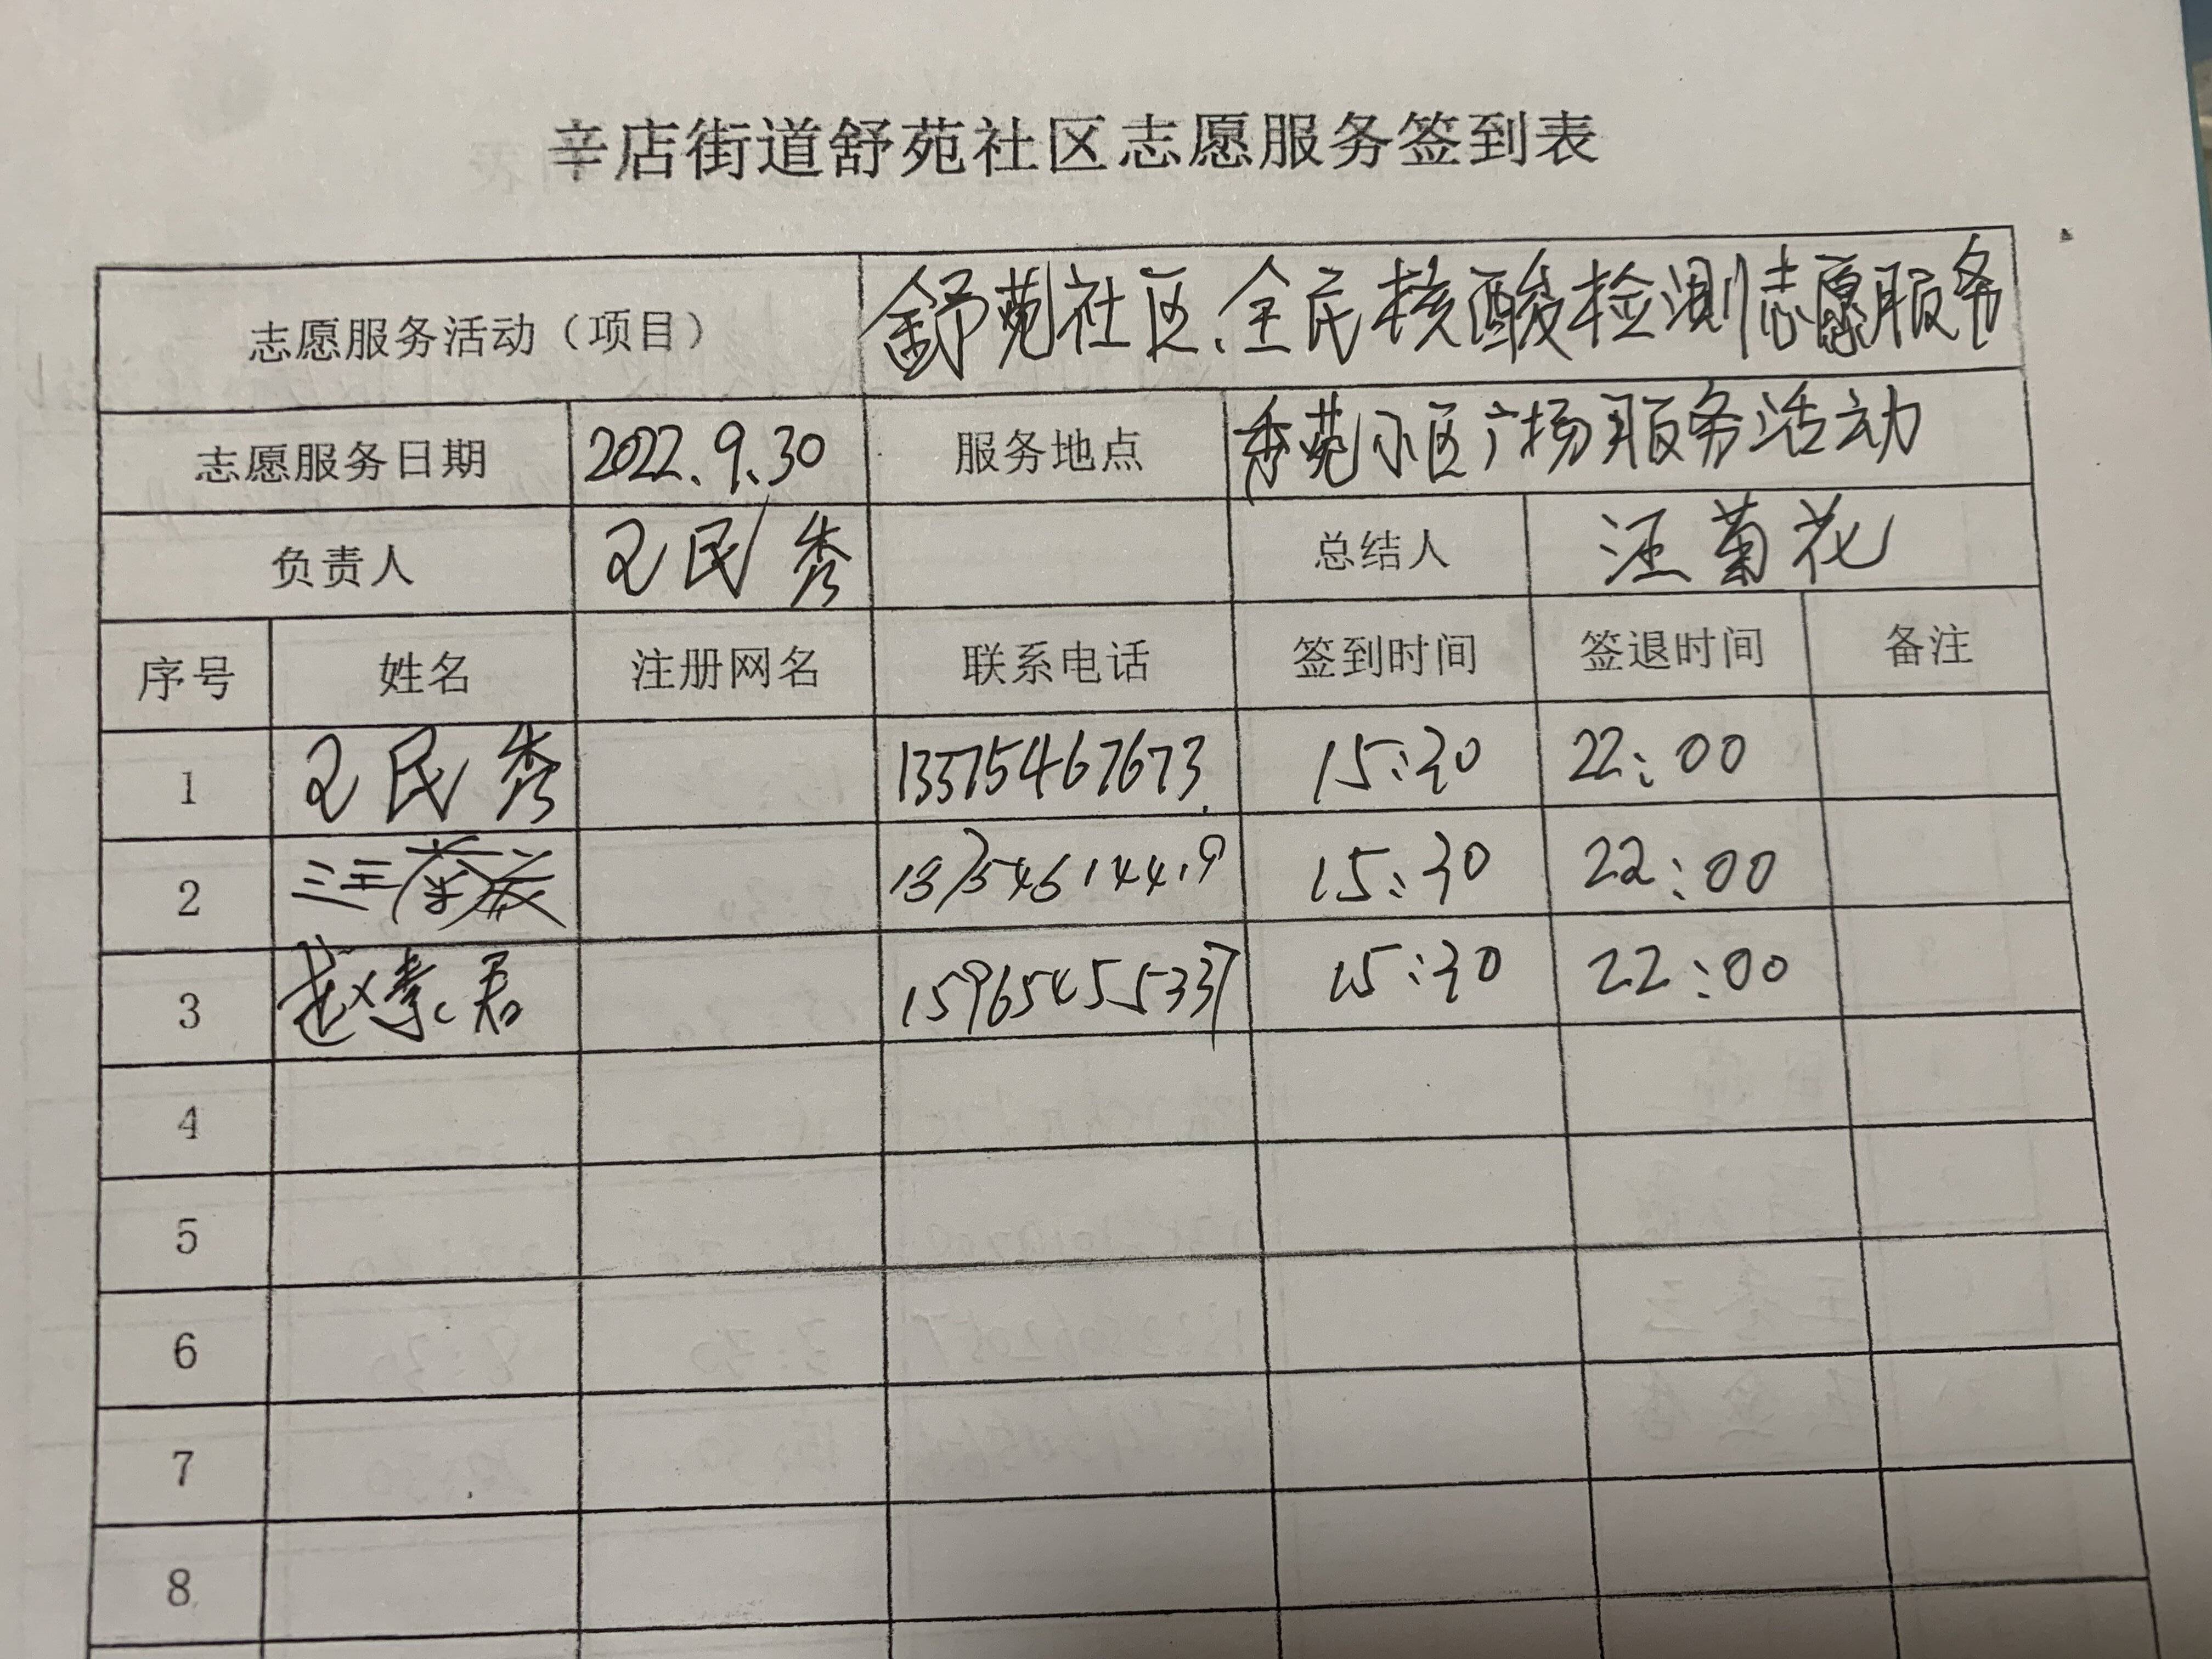 辛店街道舒苑社区志愿服务签到表
志愿服务活动（项目） 舒苑社区、全民核酸检测志愿服务
志愿服务日期 2022.9.30 服务地点 秀苑小区广场服务活动
负责人 王民秀 总结人 汪菊花
序号 姓名 注册网名 联系电话 签到时间 签退时间 备注
1 王民秀 13375467673 15:30 22:00
2 15:30 22:00
3 赵素君 15965455337 15:30 22:00
4
5
6
7
8